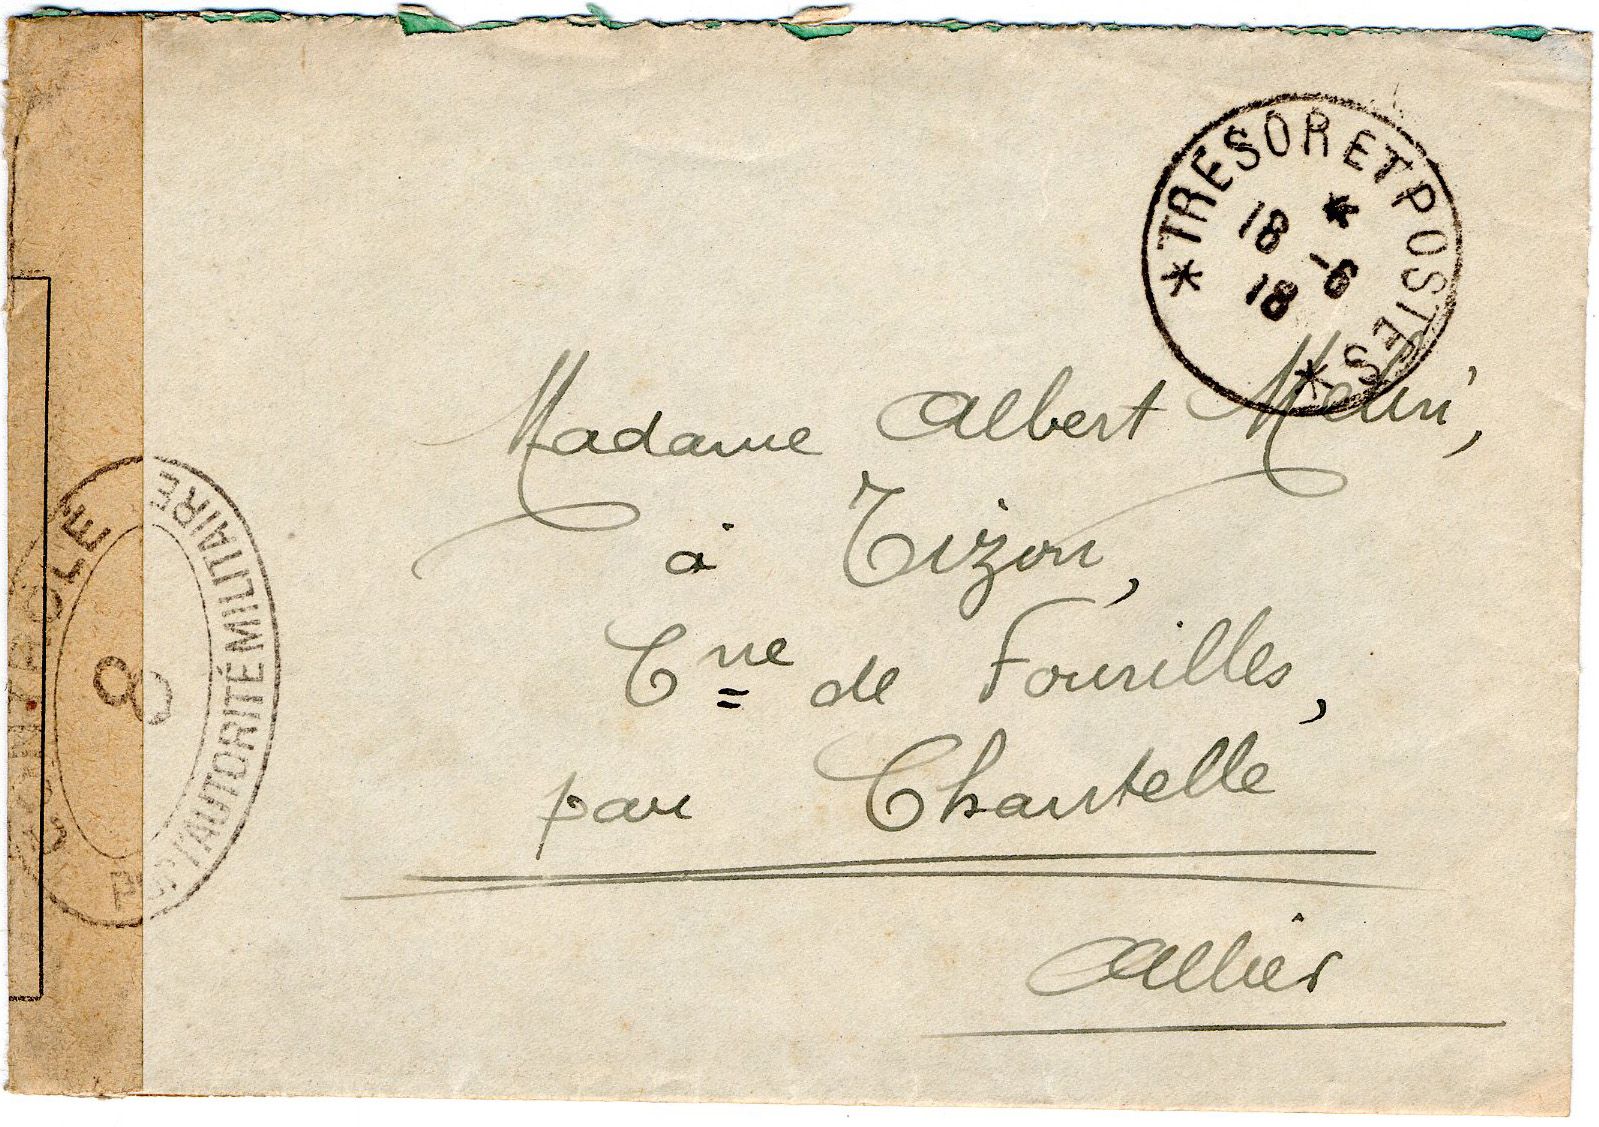 * TRESOR ET POSTES *
18 *
18 -6
Madame Albert
à Tizon,
Cne de Fourilles,
par Chantelle
Allier
L'AUTORITÉ MILITAIRE
8